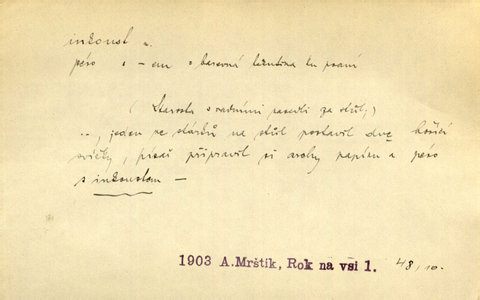 inžoust m.
péro s -em = barevná tekutina ku psaní
(Starosta s radními zasedli za stůl,)
.., jeden ze stárků na stůl postavil dvě hořící
svíčky, písař připravil si archy papíru a péro
s inžoustem —
1903 A.Mrštík, Rok na vsi 1. 48/10.